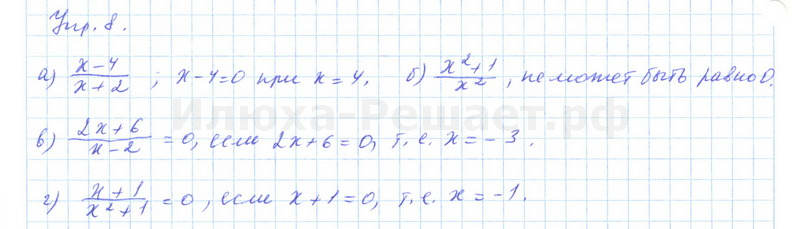 Упр. 8.
а) (x-4)/(x+2) ; x-4=0 при x=4. б) (x²+1)/x² , не может быть равно 0.
Илюха-Решает.рф
в) (2x+6)/(x-2) = 0, если 2x+6=0, т.е. x=-3.
г) (x+1)/(x²+1) = 0, если x+1=0, т.е. x=-1.